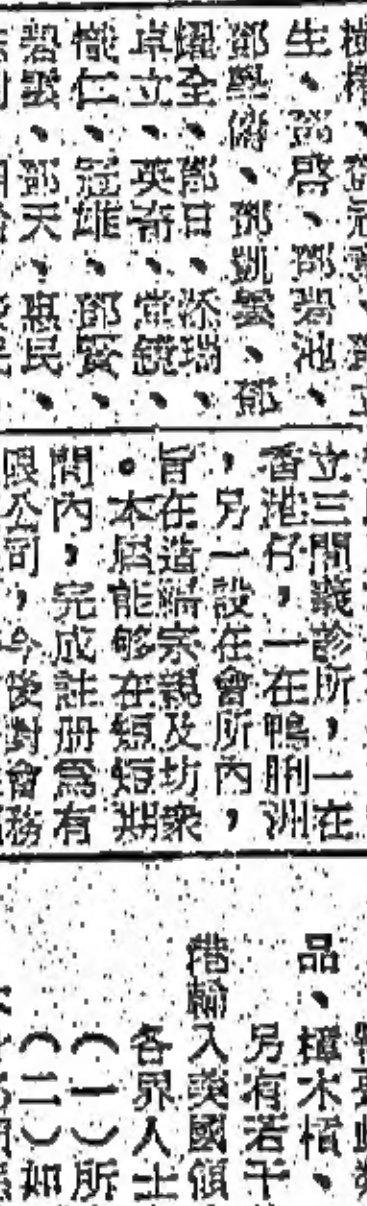 生、鄧啓、鄧碧池、
鄧堅僑、鄧凱雲、鄧
耀全、鄧日、添瑞、
卓立、英奇、棠鏡、
熾仁、冠雄、鄧賢、
碧雲、鄧天、惠民、
立三間義診所，一在
香港仔，一在鴨脷洲
，另一設在會所內，
旨在造端宗親及坊衆
。本屆能够在短短期
間內，完成註册爲有
限公司，今後對會務
品、樟木櫃、
另有若干
港輸入英國領
各界人士
（一）所
（二）如